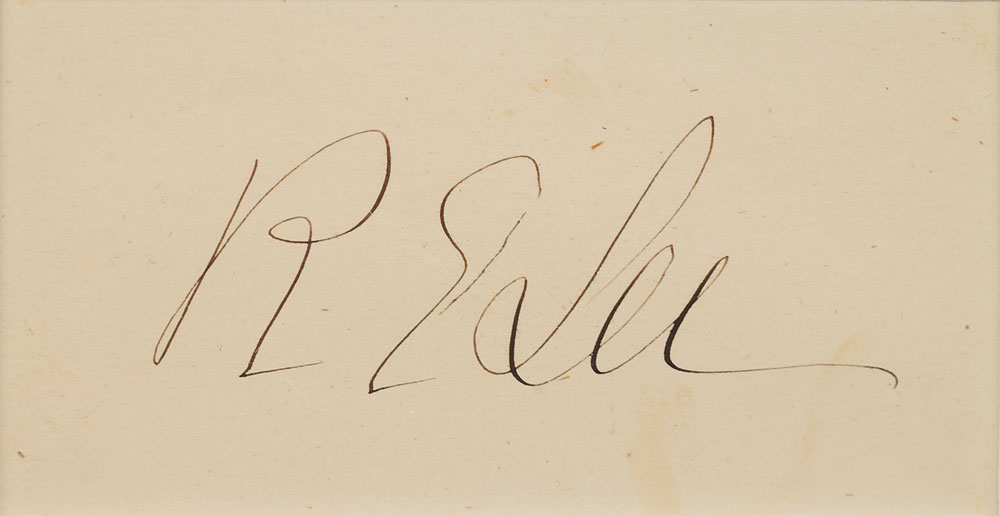 R E Lee